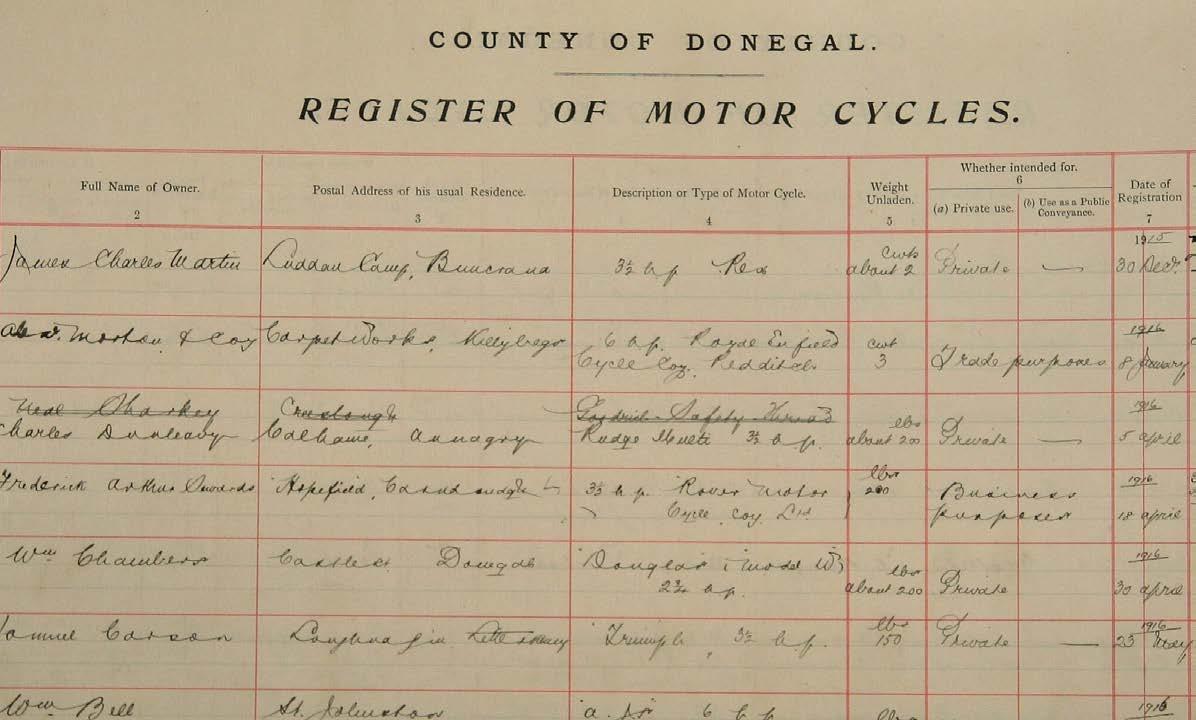 COUNTY OF DONEGAL.
REGISTER OF MOTOR CYCLES.
Full Name of Owner.
2
Postal Address of his usual Residence.
3
Description or Type of Motor Cycle.
4
Weight Unladen.
5
Whether intended for.
6
(a) Private use.
(b) Use as a Public Conveyance.
Date of Registration
7
James Charles Martin Luddan Camp, Buncrana 3½ h p Rex cwts about 2 Private — 1915 30 Decr.
Alexr. Morton & Coy Carpet Works, Killybegs 6 h.p. Royal Enfield cwt 1916
Cycle Coy. Redditch 3 Trade purposes 8 January
Neal Sharkey Creeslough Goodrich Safety Thread lbs 1916
Charles Dunleavy Calhame, Annagry Rudge Multi 3½ h p. about 200 Private — 5 April
Frederick Arthur Hopefield, 3½ h p. Rover Motor lbs 200 Business 1916
Cycle Coy Ltd purposes 18 April
Wm Chambers Castle St Donegal Douglas, model lbs 1916
2¾ h p. about 200 Private 30 April
Samuel Carson Letterkenny Triumph, 3½ h p. lbs 150 Private — 1916 23 May
Wm Bell St. Johnston 6 h p lbs 1916